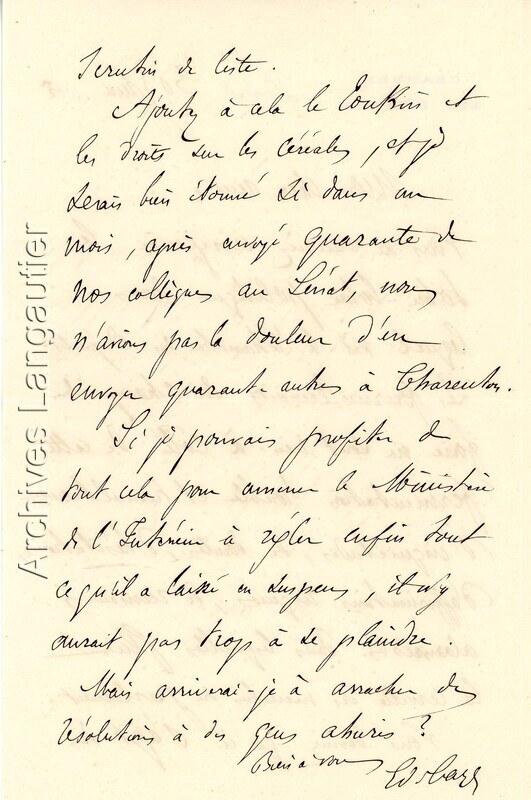 Scrutin de liste.
Ajoutez à cela le Tonkin et
les droits sur les céréales, et je
serais bien étonné si dans un
mois, après envoyé quarante de
nos collègues au Sénat, nous
n'avions pas la douleur d'en
envoyer quarante autres à Charenton.
Si je pouvais profiter de
tout cela pour amener le Ministère
de l'Intérieur à régler enfin tout
ce qu'il a laissé en suspens, il n'y
aurait pas trop à se plaindre.
Mais arriverai-je à arracher des
résolutions à des gens ahuris ?
Bien à vous
Archives Langautier